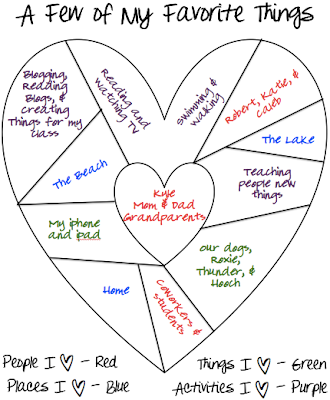 A Few of My Favorite Things
Blogging,
Reading
Blogs, &
Creating
Things for my
class
Reading and
watching TV
Swimming &
walking
Robert, Katie, &
Caleb
The Lake
Teaching
people new
things
Our dogs,
Roxie,
Thunder, &
Hooch
Coworkers &
students
Home
My iphone
and ipad
The Beach
Kyle
Mom & Dad
Grandparents
People I ♡ - Red
Places I ♡ - Blue
Things I ♡ - Green
Activities I ♡ - Purple